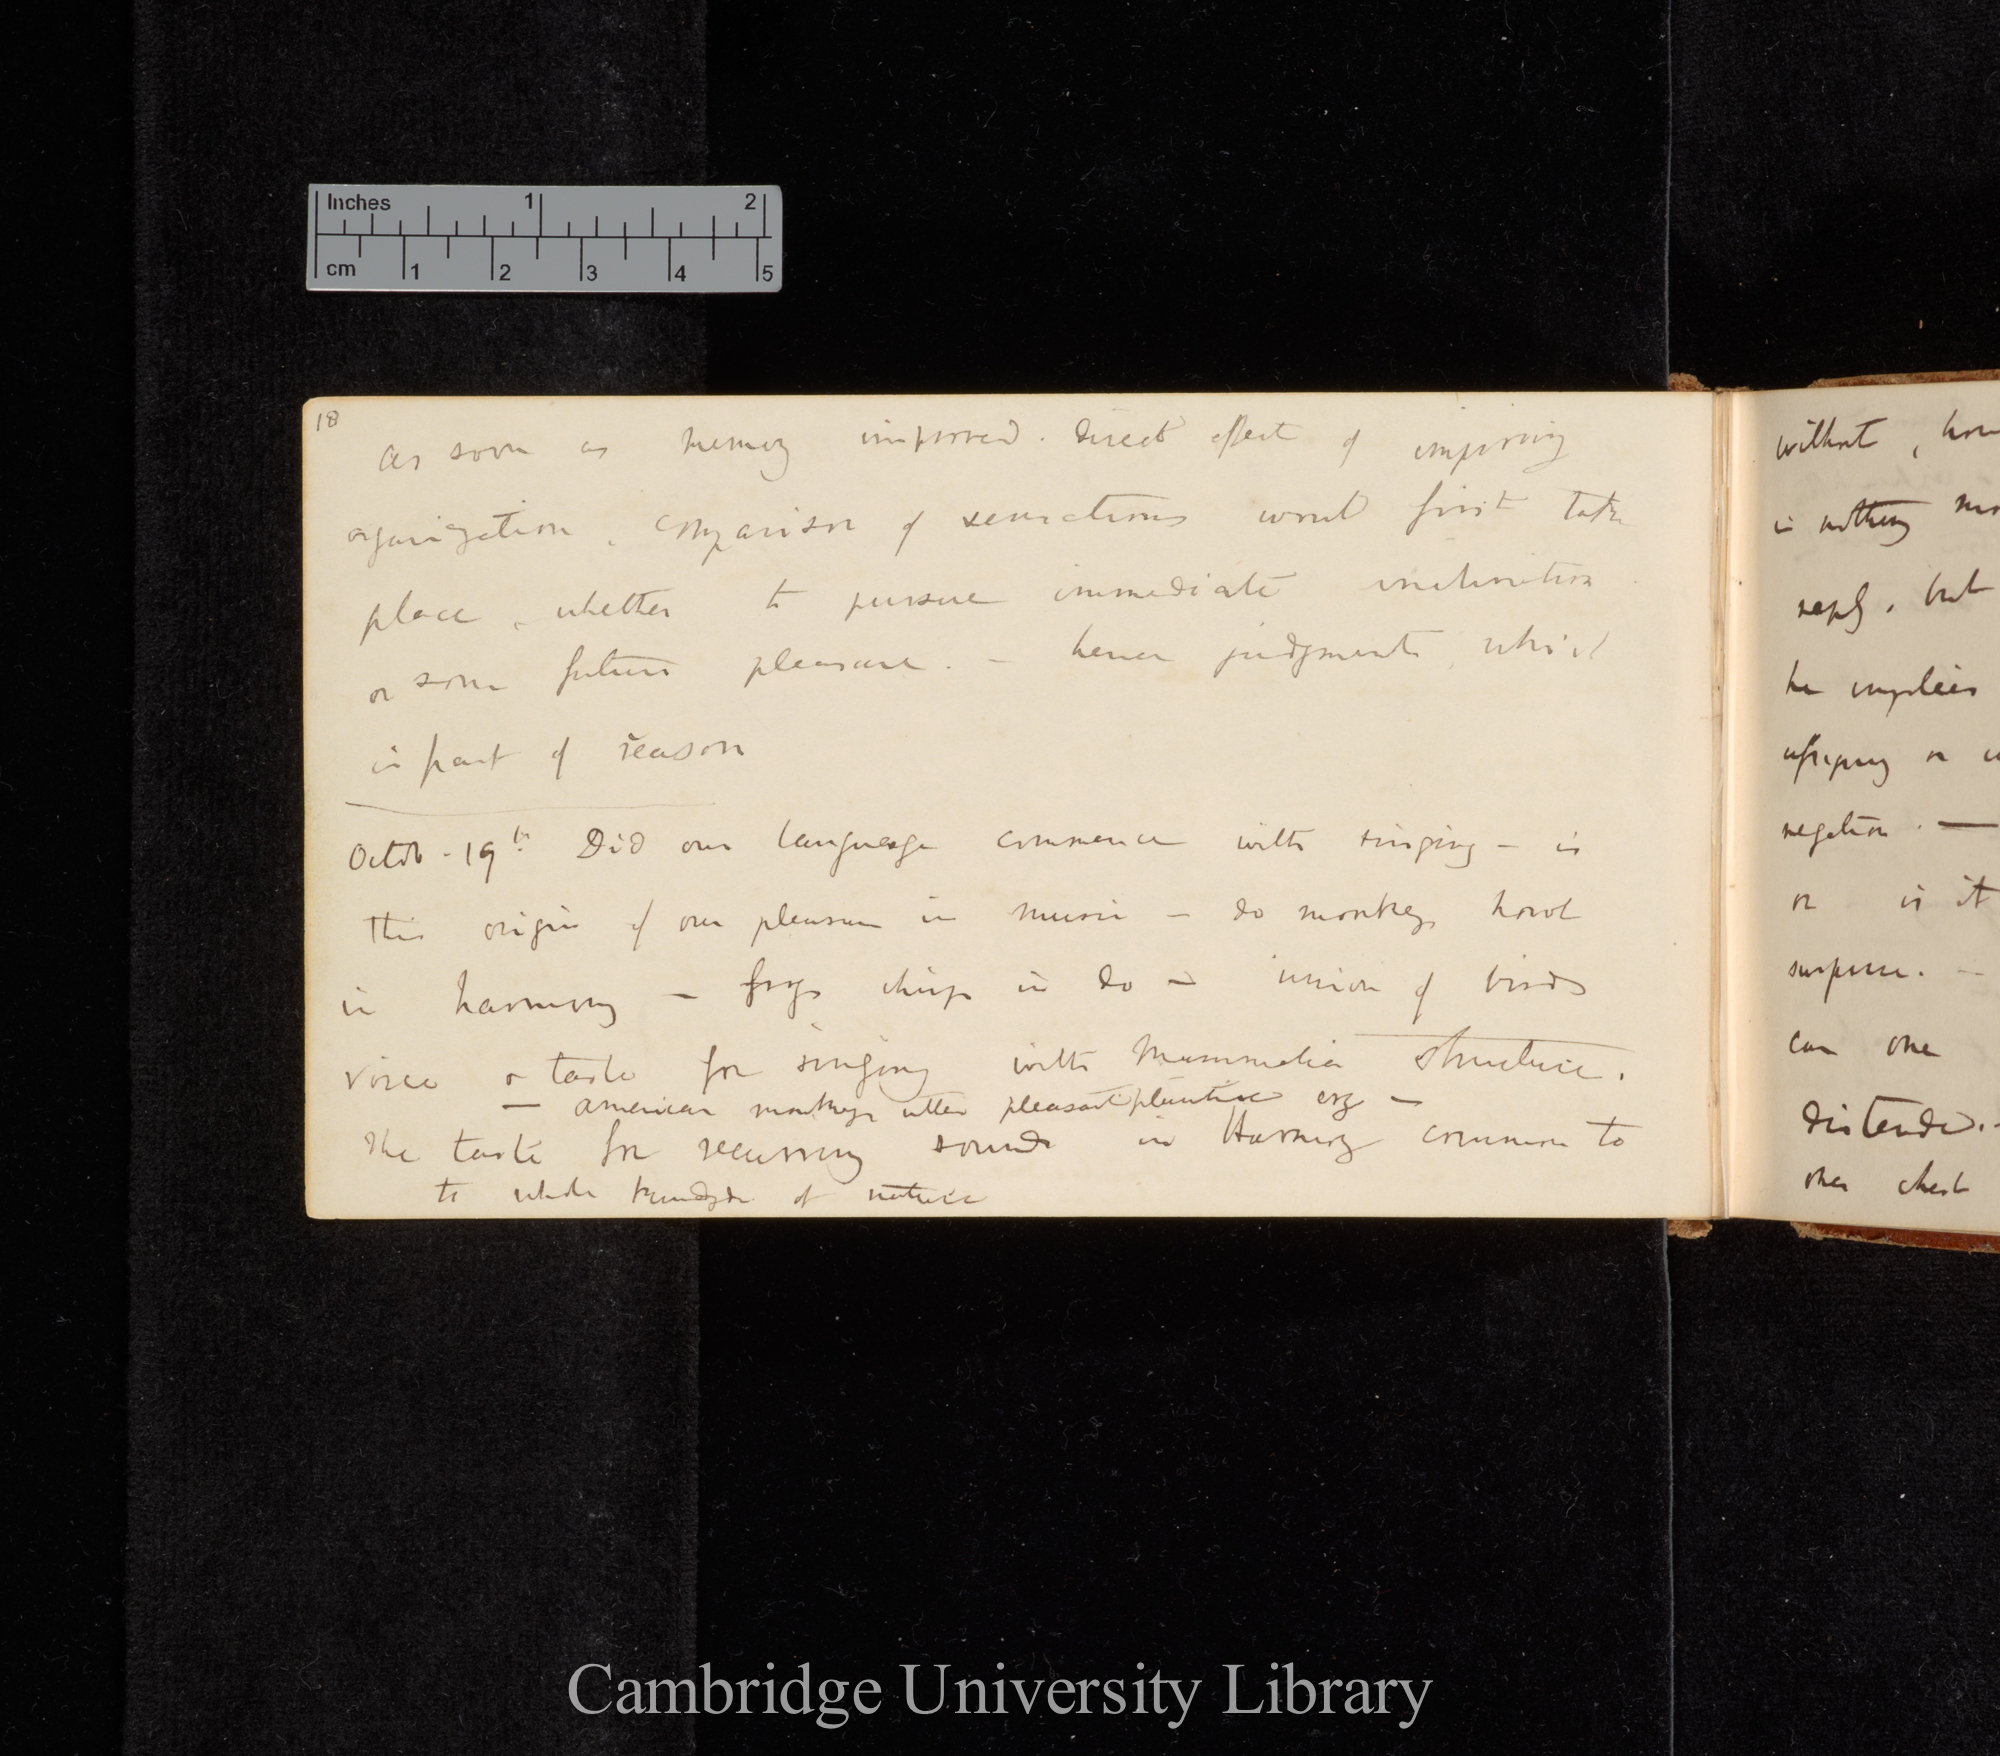 Inches 1 2
cm 1 2 3 4 5
18
as soon as memory improved. direct effect of improving
organization, comparison of sensations would first take
place, whether to pursue immediate inclination
or some future pleasure. — hence judgment, which
is part of reason
Octob. 19th. Did our language commence with singing — is
this origin of our pleasure in music — do monkeys howl
in harmony — frogs chirp in do — union of birds
voice & taste for singing with Mammalia structure.
— American monkeys utter pleasant plaintive cry —
The taste for recurring sounds in Harmony common to
to whole kingdom of nature
without, how
is nothing mo
reply, but
he implies
negation. —
or is it
surprise. —
can one
distends. —
ones chest
Cambridge University Library